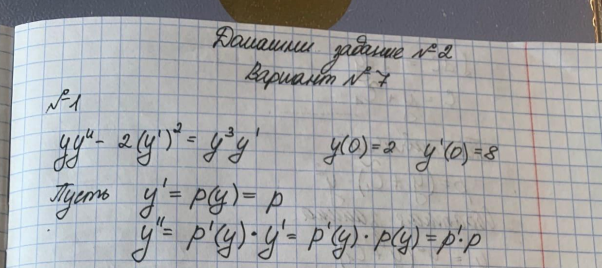 Домашни задание №2
Вариант №7
№1
yy" - 2(y')² = y³y' y(0)=2 y'(0)=8
Пусть y' = p(y) = p
y" = p'(y)·y' = p'(y)·p(y) = p'·p